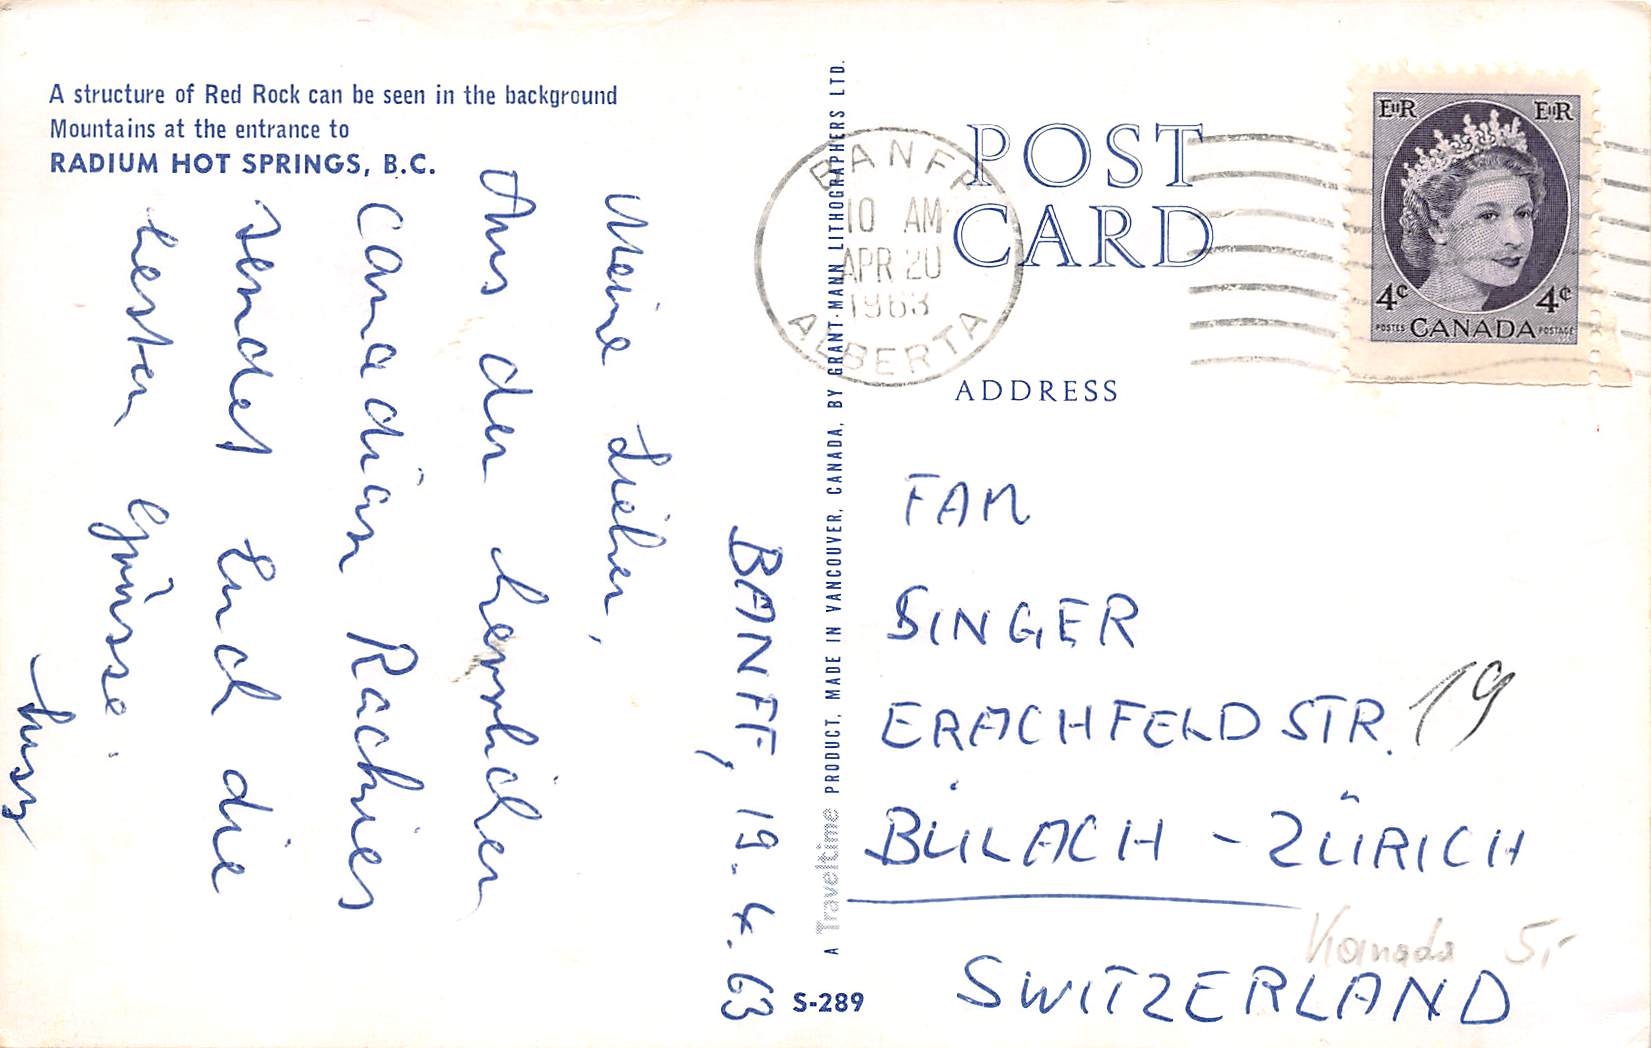 A structure of Red Rock can be seen in the background
Mountains at the entrance to
RADIUM HOT SPRINGS, B.C.
BANFF, 19.4.63
Meine Lieben,
Aus den herrlichen
Canadian Rockies
sendet Euch die
besten Grüsse.
A Traveltime PRODUCT. MADE IN VANCOUVER, CANADA, BY GRANT-MANN LITHOGRAPHERS LTD.
S-289
POST
CARD
ADDRESS
BANFF
10 AM
APR 20
1963
ALBERTA
EIIR EIIR
4¢ 4¢
POSTES CANADA POSTAGE
FAM
SINGER
ERACHFELDSTR. 19
BÜLACH - ZÜRICH
SWITZERLAND
Kanada 5,-